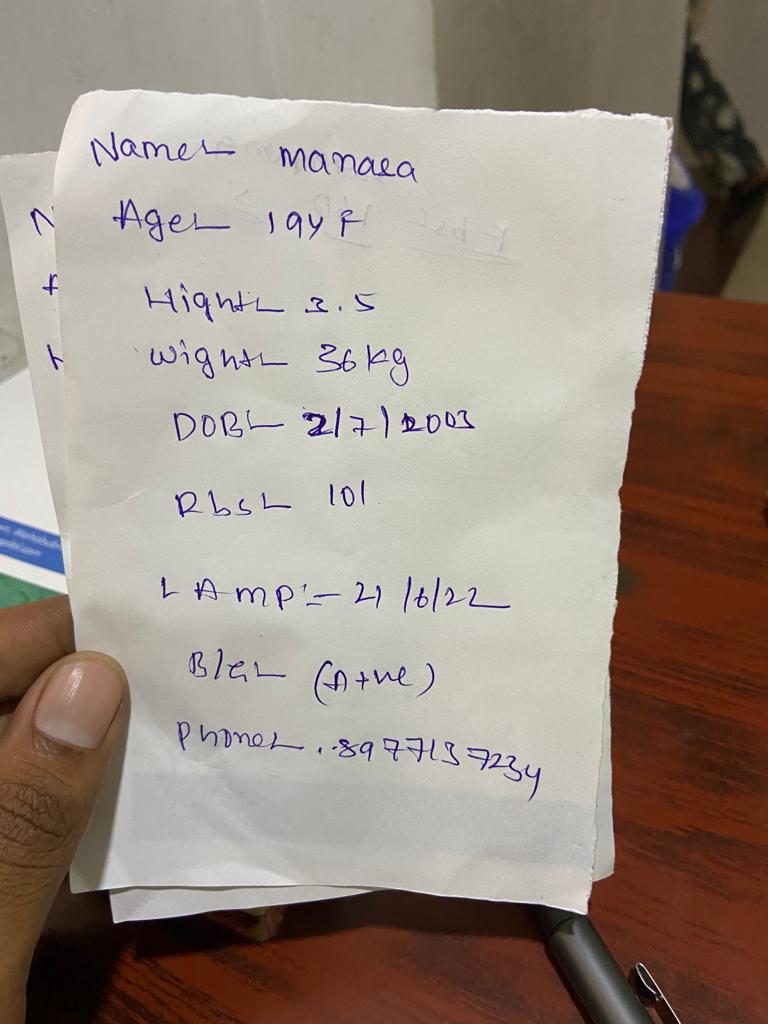 Name:- manasa
Age:- 19y F
Hight:- 3.5
Wight:- 36 kg
DOB:- 2/7/2003
Rbs:- 101
LAMP:- 21/6/22
B/G:- (A+ve)
Phone:- 8977137234
N
A
H